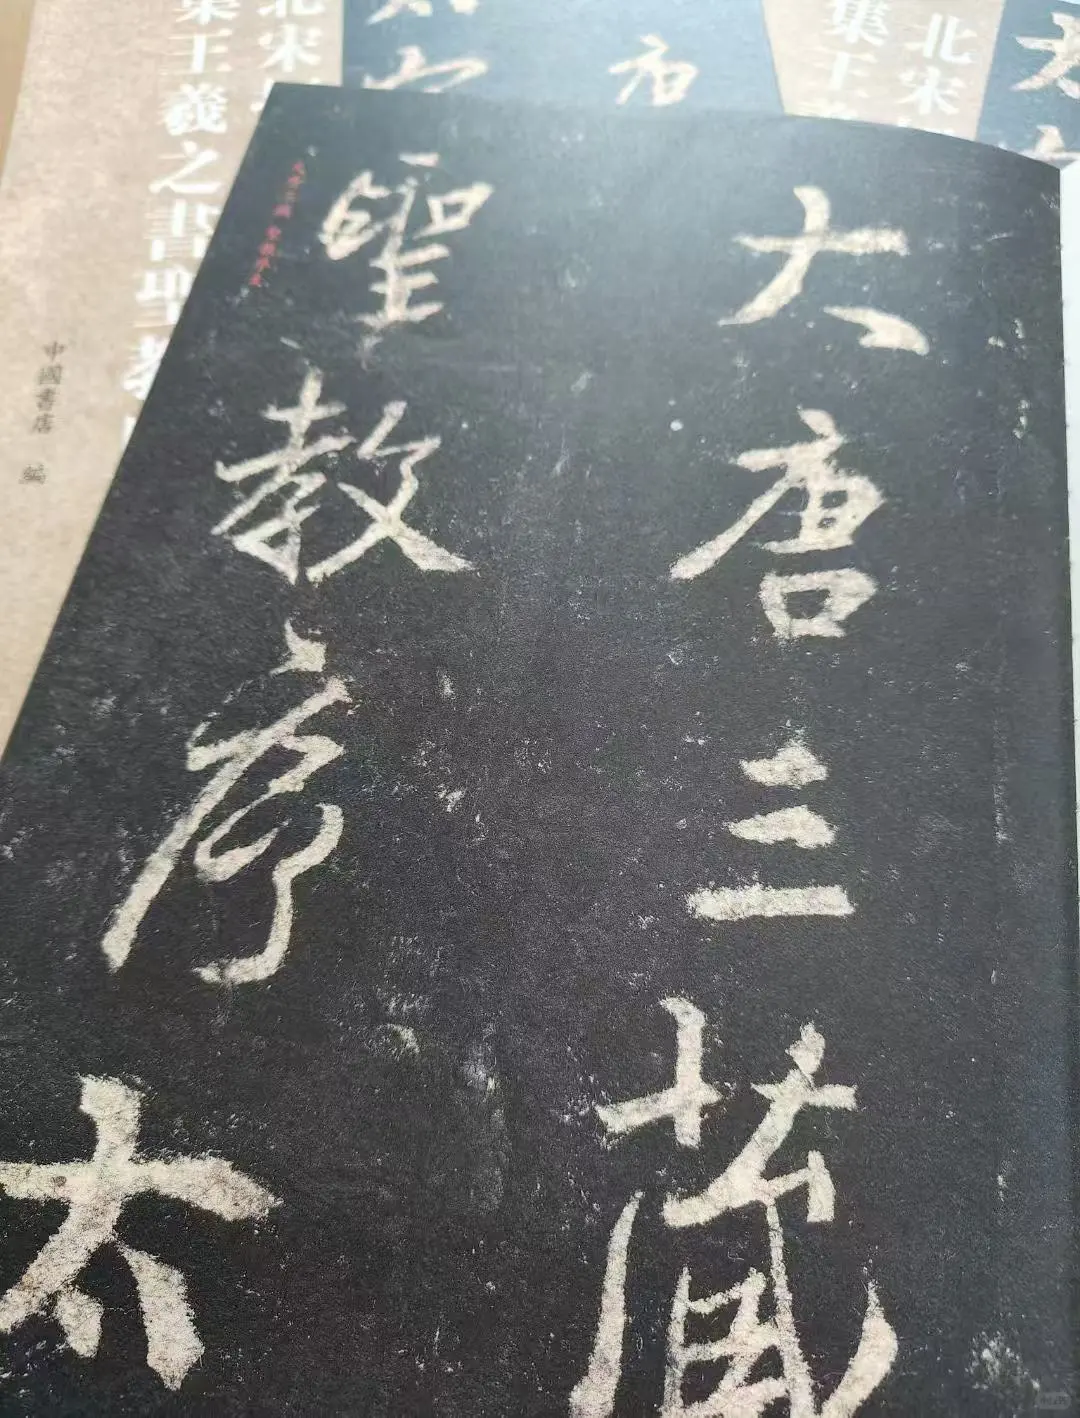 大唐三藏
聖教序
太
北宋
集王羲之書聖教
中國書店 編
北宋
集王